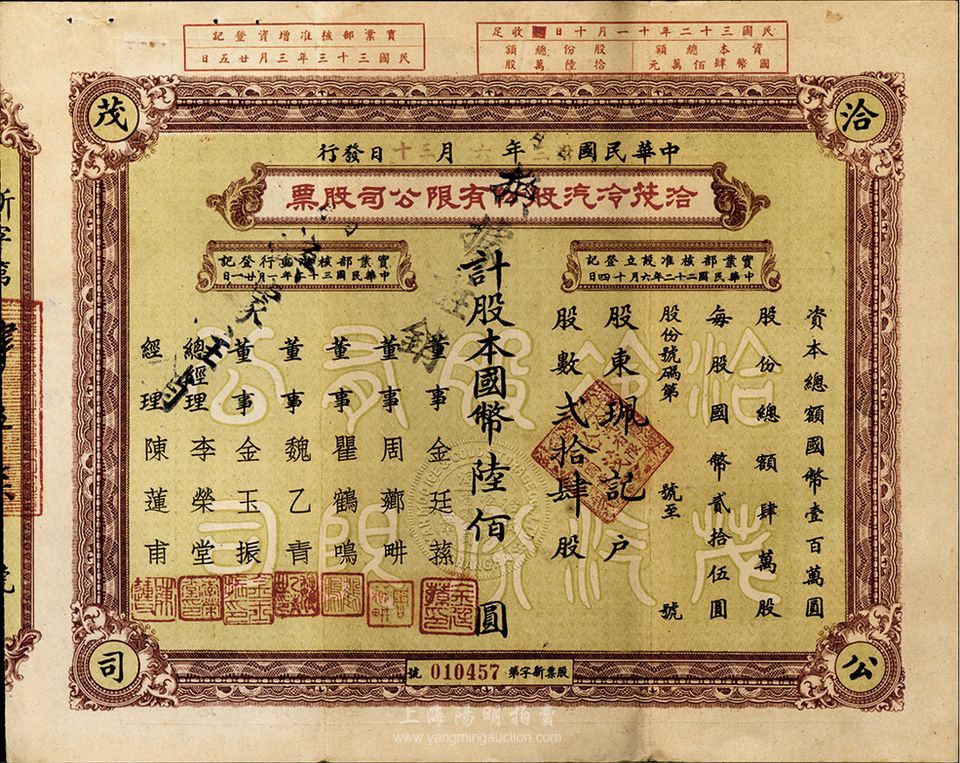 民國三十二年十一月十日收足
資本總額 國幣肆佰萬元
股份總額 拾陸萬股
實業部核准增資登記
民國三十三年三月廿五日
洽
茂
公
司
中華民國三十二年六月三十日發行
洽茂冷汽股份有限公司股票
實業部核准設立登記
中華民國二十二年六月十四日
實業部核准並行登記
中華民國三十二年一月廿一日
資本總額國幣壹百萬圓
股份總額肆萬股
每股國幣貳拾伍圓
股份號碼第 號至 號
股東珮記戶
股數弍拾肆股
計股本國幣陸佰圓
董事金廷蓀
董事周薌畊
董事瞿鶴鳴
董事魏乙青
董事金玉振
總經理李榮堂
經理陳蓮甫
洽茂冷汽股份有限公司
股票新字第010457號
新字第
上海陽明拍賣
www.yangmingauction.com